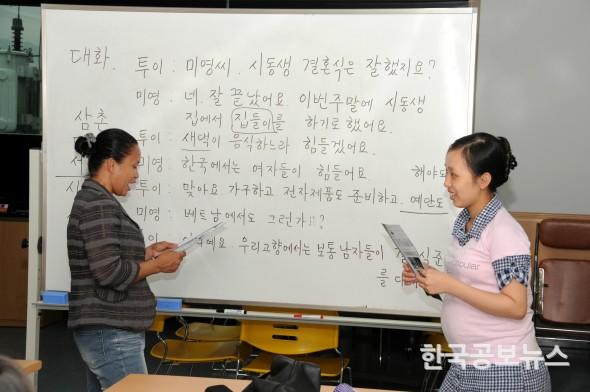 대화. 투이 : 미영씨. 시동생 결혼식은 잘했지요?
미영 : 네. 잘 끝났어요. 이번주말에 시동생
집에서 집들이를 하기로 했어요.
삼촌
투이 : 새댁이 음식하느라 힘들겠어요.
미영 : 한국에서는 여자들이 힘들어요 해야
투이 : 맞아요. 가구하고 전자제품도 준비하고. 예단도
미영 : 베트남에서도 그런가요?
예요. 우리고향에서는 보통 남자들이
를
popular
한국공보뉴스